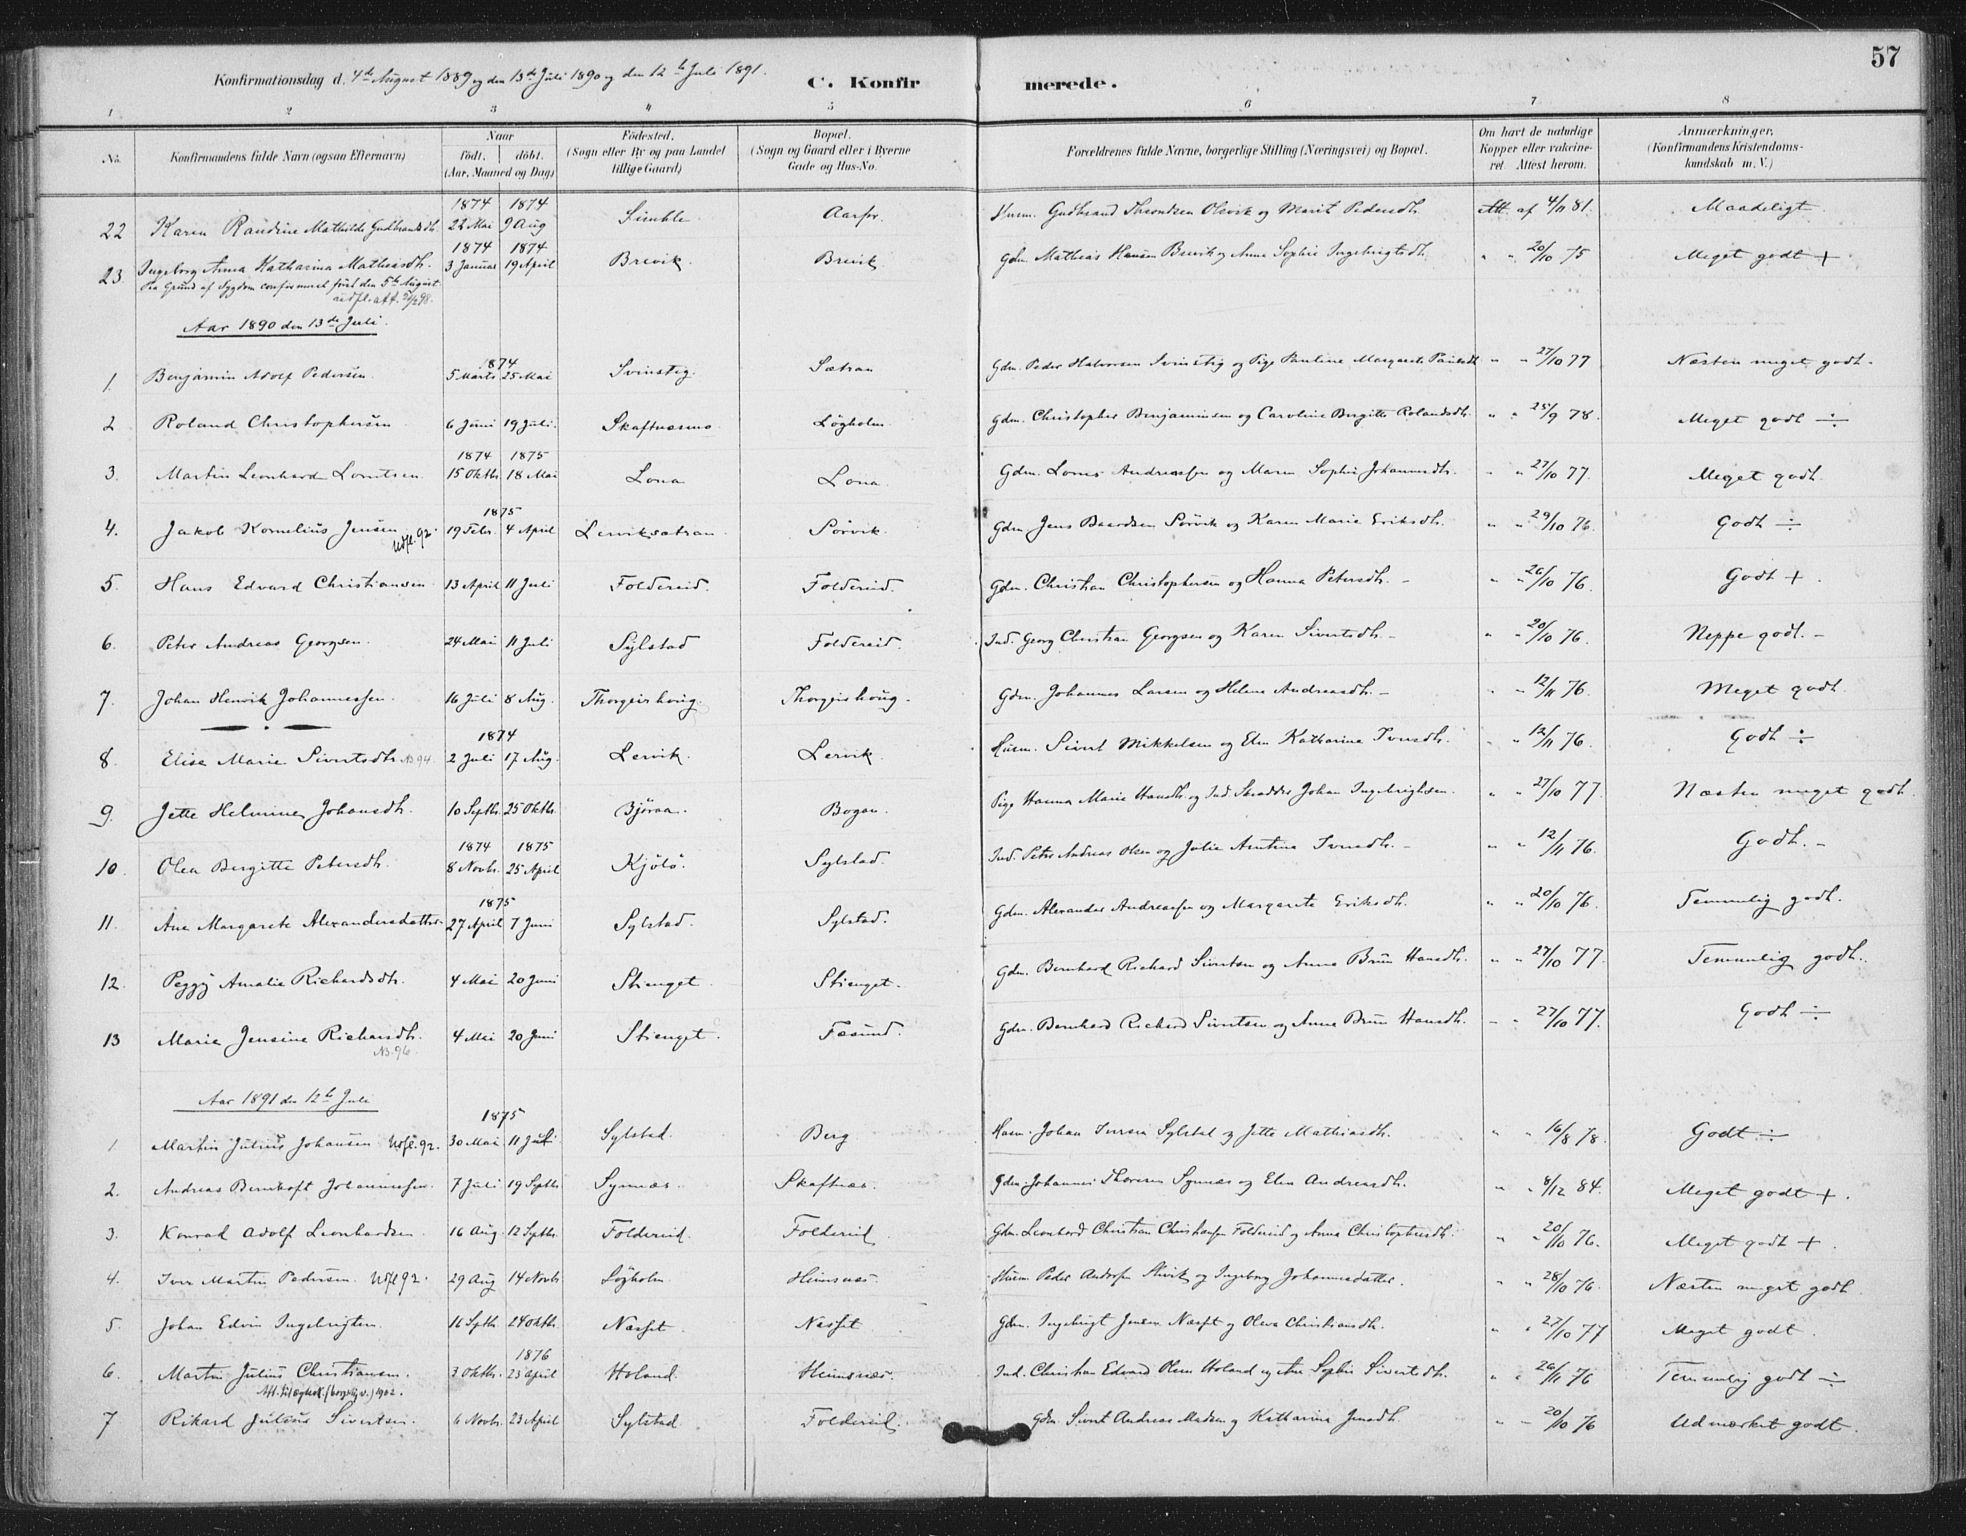 57
Konfirmationsdag d. 4de August 1889 og den 13de Juli 1890 og den 12te Juli 1891.
C. Konfirmerede.
1 2 3 4 5 6 7 8
No. Konfirmandens fulde Navn (ogsaa Efternavn) Naar födt. döbt. (Aar, Maaned og Dag) Födested. (Sogn eller By og paa Landet tillige Gaard) Bopæl. (Sogn og Gaard eller i Byerne Gade og Hus-No. Forældrenes fulde Navne, borgerlige Stilling (Næringsvei) og Bopæl. Om havt de naturlige Kopper eller vakcineret. Attest herom. Anmærkninger. (Konfirmandens Kristendomskundskab m. V.)
1874 1874
22 Karen Randine Mathilde Gudbrandsdtr. 22 Mai 9 Aug Simble Aarfor. Husm. Gudbrand Throndsen Olsvik og Marit Pedersdtr. Att. af 4/11 81. Maadeligt.
1874 1874
23. Ingeborg Anna Katharina Mathiasdtr. 3 Januar 19 April Brevik. Brevik Gdm. Mathias Hansen Brevik og Anna Sophie Ingebrigtsdtr. " " 20/10 75 Meget godt +
Paa Grund af Sygdom confirmeret først den 5te August.
Aar 1890 den 13de Juli.
1874
1. Benjamin Adolf Pedersen. 5 Marts 25 Mai Svinsteg. Sætran Gdm. Peder Halvorsen Svinsteg og Pige Pauline Margarete " " 27/10 77 Næsten meget godt.
2 Roland Christophersen 6 Juni 19 Juli. Skaftnæsmo Løgholm Gdm. Christopher Benjaminsen og Caroline Bergitte Rolandsdtr. " " 25/9 78. Meget godt ÷
1874 1875
3. Martin Leonhard Lorntsen 15 Oktbr. 18 Mai Lona Lona. Gdm. Lornts Andreassen og Maren Sophie Johannesdtr. " " 27/10 77. Meget godt.
1875
4. Jakob Kornelius Jensen Udfl. 92. 19 Febr. 4 April Lerviksætran Sørvik. Gdm Jens Baardsen Sørvik og Karen Marie Eriksdtr. " " 29/10 76. Godt ÷
5 Hans Edvard Christiansen 13 April 11 Juli Foldereid. Foldereid. Gdm. Christian Christophersen og Hanna Petersdtr. - " " 26/10 76. Godt +.
6. Peter Andreas Georgsen. 24 Mai 11 Juli Sylstad Foldereid. Ind. Georg Christian Georgsen og Karen Sivertsdtr. - " " 20/10 76. Neppe godt. -
7. Johan Henrik Johannessen. 16 Juli 8 Aug. Thorgeirshoug. Thorgeirshoug. Gdm. Johannes Larsen og Helene Andreasdtr. - " " 12/11 76. Meget godt.
1874
8. Elise Marie Sivertsdtr. NB 94. 2 Juli 17 Aug. Lervik. Lervik. Husm. Sivert Mikkelsen og Elen Katharina Iversdtr. " " 12/11 76. Godt ÷
9. Jette Helmine Johansdtr. 10 Septbr. 25 Oktbr. Bjøraa. Bogan. Pige Hanna Marie Hansdtr. og Ind. Skrædder Johan Ingebrigtsen. " " 27/10 77. Næsten meget godt.
1874 1875
10. Olea Bergitte Petersdtr. 8 Novbr. 25 April Kjølø. Sylstad. Ind. Peter Andreas Olsen og Julie Arntine Iversdtr. - " " 12/11 76. Godt. -
1875
11. Ane Margarete Alexandersdatter 27 April 7 Juni Sylstad. Sylstad. Gdm. Alexander Andreassen og Margarete Eriksdtr. " " 20/10 76. Temmelig godt.
12. Peggy Amalie Richardsdtr. 4 Mai 20 Juni Stienget Stienget. Gdm. Bernhard Richard Sivertsen og Anna Brun Hansdtr. " " 27/10 77. Temmelig godt.
13 Marie Jensine Richardsdtr. 4 Mai 20 Juni Stienget.Føsund. Gdm. Bernhard Richard Sivertsen og Anna Brun Hansdtr. " " 27/10 77. Godt ÷
NB. 96.
Aar 1891 den 12te Juli
1875
1 Martin Julius Johansen Udfl. 92. 30 Mai 11 Juli Sylstad. Berg Husm. Johan Iversen Sylstad og Jette Mathiasdtr. " " 16/8 78. Godt ÷
2. Andreas Bernhoft Johannessen. 7 Juli 19 Septbr. Synnæs. Skaftnæs. Gdm. Johannes Thoresen Synnæs og Elen Andreasdtr. " " 8/12 84. Meget godt +.
3. Konrad Adolf Leonhardsen 16 Aug. 12 Septbr. Foldereid. Foldereid. Gdm. Leonhard Christian Christiansen Foldereid og Anna Christophersdtr. " " 20/10 76. Meget godt +.
4. Iver Martin Pedersen. Udfl 92. 29 Aug 14 Novbr Løgholm Heimsnæs. Husm. Peder og Ingeborg Johannesdatter. " " 28/10 76. Næsten meget godt.
5. Johan Edvin Ingebrigtsen 16 Septbr. 24 Oktbr. Næsset. Næsset Gdm. Ingebrigt Jensen Næsset og Oleva Christiansdtr. " " 27/10 77 Meget godt.
1876
6. Martin Julius Christiansen. 3 Oktbr. 23 April Holand. Heimsnæs. Ind. Christian Edvard Olsen Holand og Ane Sophie Sivertsdtr. " " 26/11 76 Temmelig godt ÷
7 Rikard Julius Sivertsen. 6 Novbr. 23 April Sylstad Foldereid. Gdm. Sivert Andreas Madsen og Katharina Jensdtr. " " 20/10 76 Udmærket godt.